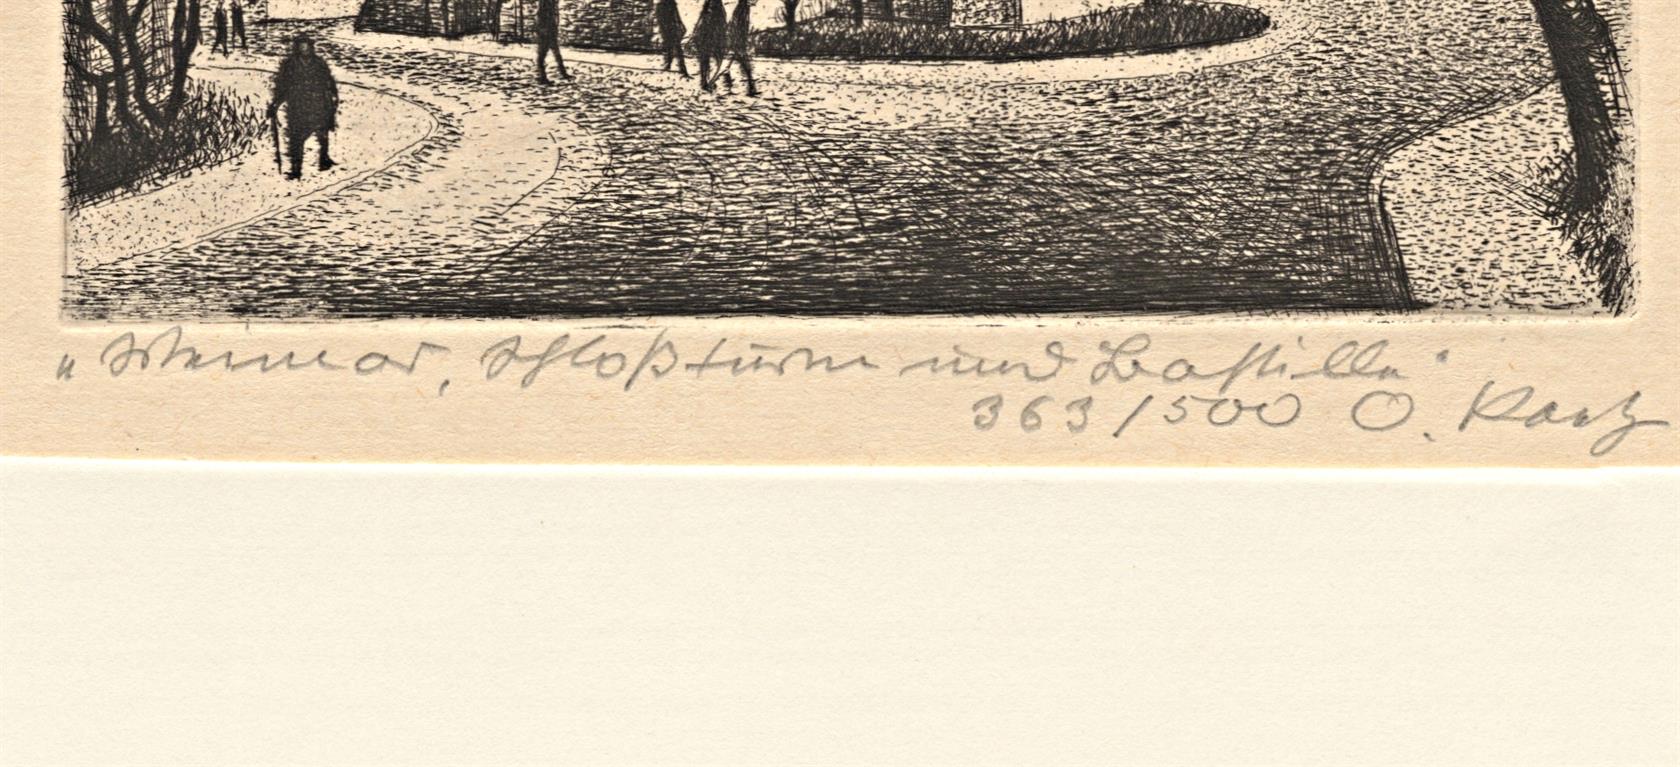 „Weimar, Schloßturm und Bastille"
363/500 O. Kaatz